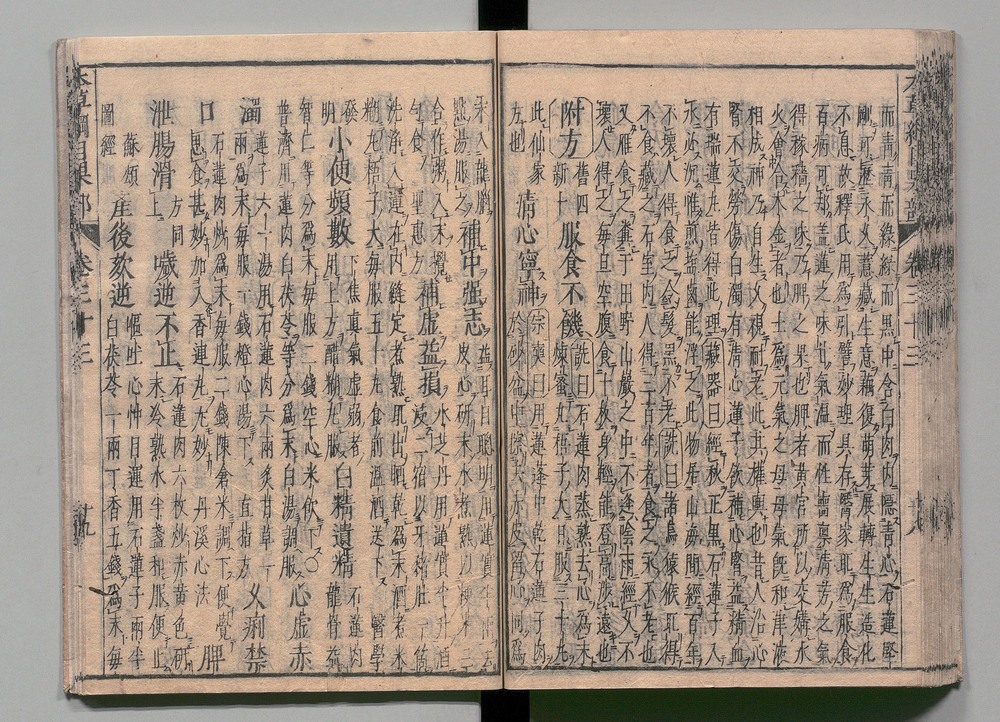 本草綱目果部 卷三十三 廿八
而青青而綠綠而黑中含白肉內隱青心石蓮堅
剛可歷永久薏藏生意藕復萌芽展轉生生造化
不息故釋氏用爲引譬妙理具存醫家取爲服食
百病可却蓋蓮之味甘氣溫而性嗇稟清芳之氣
得稼穡之味乃脾之果也脾者黃宮所以交媾水
火會合木金者也土爲元氣之母母氣旣和津液
相成神乃自生久視耐老此其權輿也昔人治心
腎不交勞傷白濁有清心蓮子飲補心腎益精血
有瑞蓮丸皆得此理藏器曰經秋正黑石蓮子入
水必沉惟煎鹽鹵能浮之此物居山海間經百年
不壞人得食之令髮黑不老詵曰諸鳥猿猴取得
不食藏之石室內人得三百年者食之永不老也
又雁食之糞于田野山巖之中不逢陰雨經久不
壞人得之每旦空腹食十枚身輕能登高涉遠也
附方 舊四 新十 服食不饑 詵曰石蓮肉蒸熟去心爲末 煉蜜丸梧子大日服三十丸
此仙家方也 清心寧神 宗奭曰用蓮蓬中乾石蓮子肉 於砂盆中擦去赤皮留心同爲
末入龍腦 點湯服之 補中強志 益耳目聰明用蓮實半兩去 皮心研末水煮熟以粳米三
合作粥入末攪 勻食 聖惠方 補虛益損 水芝丹用蓮實半升酒 浸二宿以牙豬肚一箇
洗淨入蓮在內縫定煮熟取出晒乾爲末酒煮米 糊丸梧子大每服五十丸食前溫酒送下 醫學
發明 小便頻數 下焦眞氣虛弱者 用上方醋糊丸服 白精遺精 石蓮肉 龍骨益
智仁等分爲末每服二錢空心米飲下○ 普濟用蓮肉白茯苓等分爲末白湯調服 心虛赤
濁 蓮子六一湯用石蓮肉六兩炙甘草一 兩爲末每服一錢燈心湯下 直指方 久痢禁
口 石蓮肉炒爲末每服二錢陳倉米調下便覺 思食甚妙加入香連丸尤妙 丹溪心法 脾
泄腸滑 方同上 噦逆不止 石蓮肉六枚炒赤黃色研 末冷熟水半盞和服便止
蘇頌 圖經 產後欬逆 嘔吐心忡目運用石蓮子兩半 白茯苓一兩丁香五錢爲末每
本草綱目果部 卷三十三 廿九